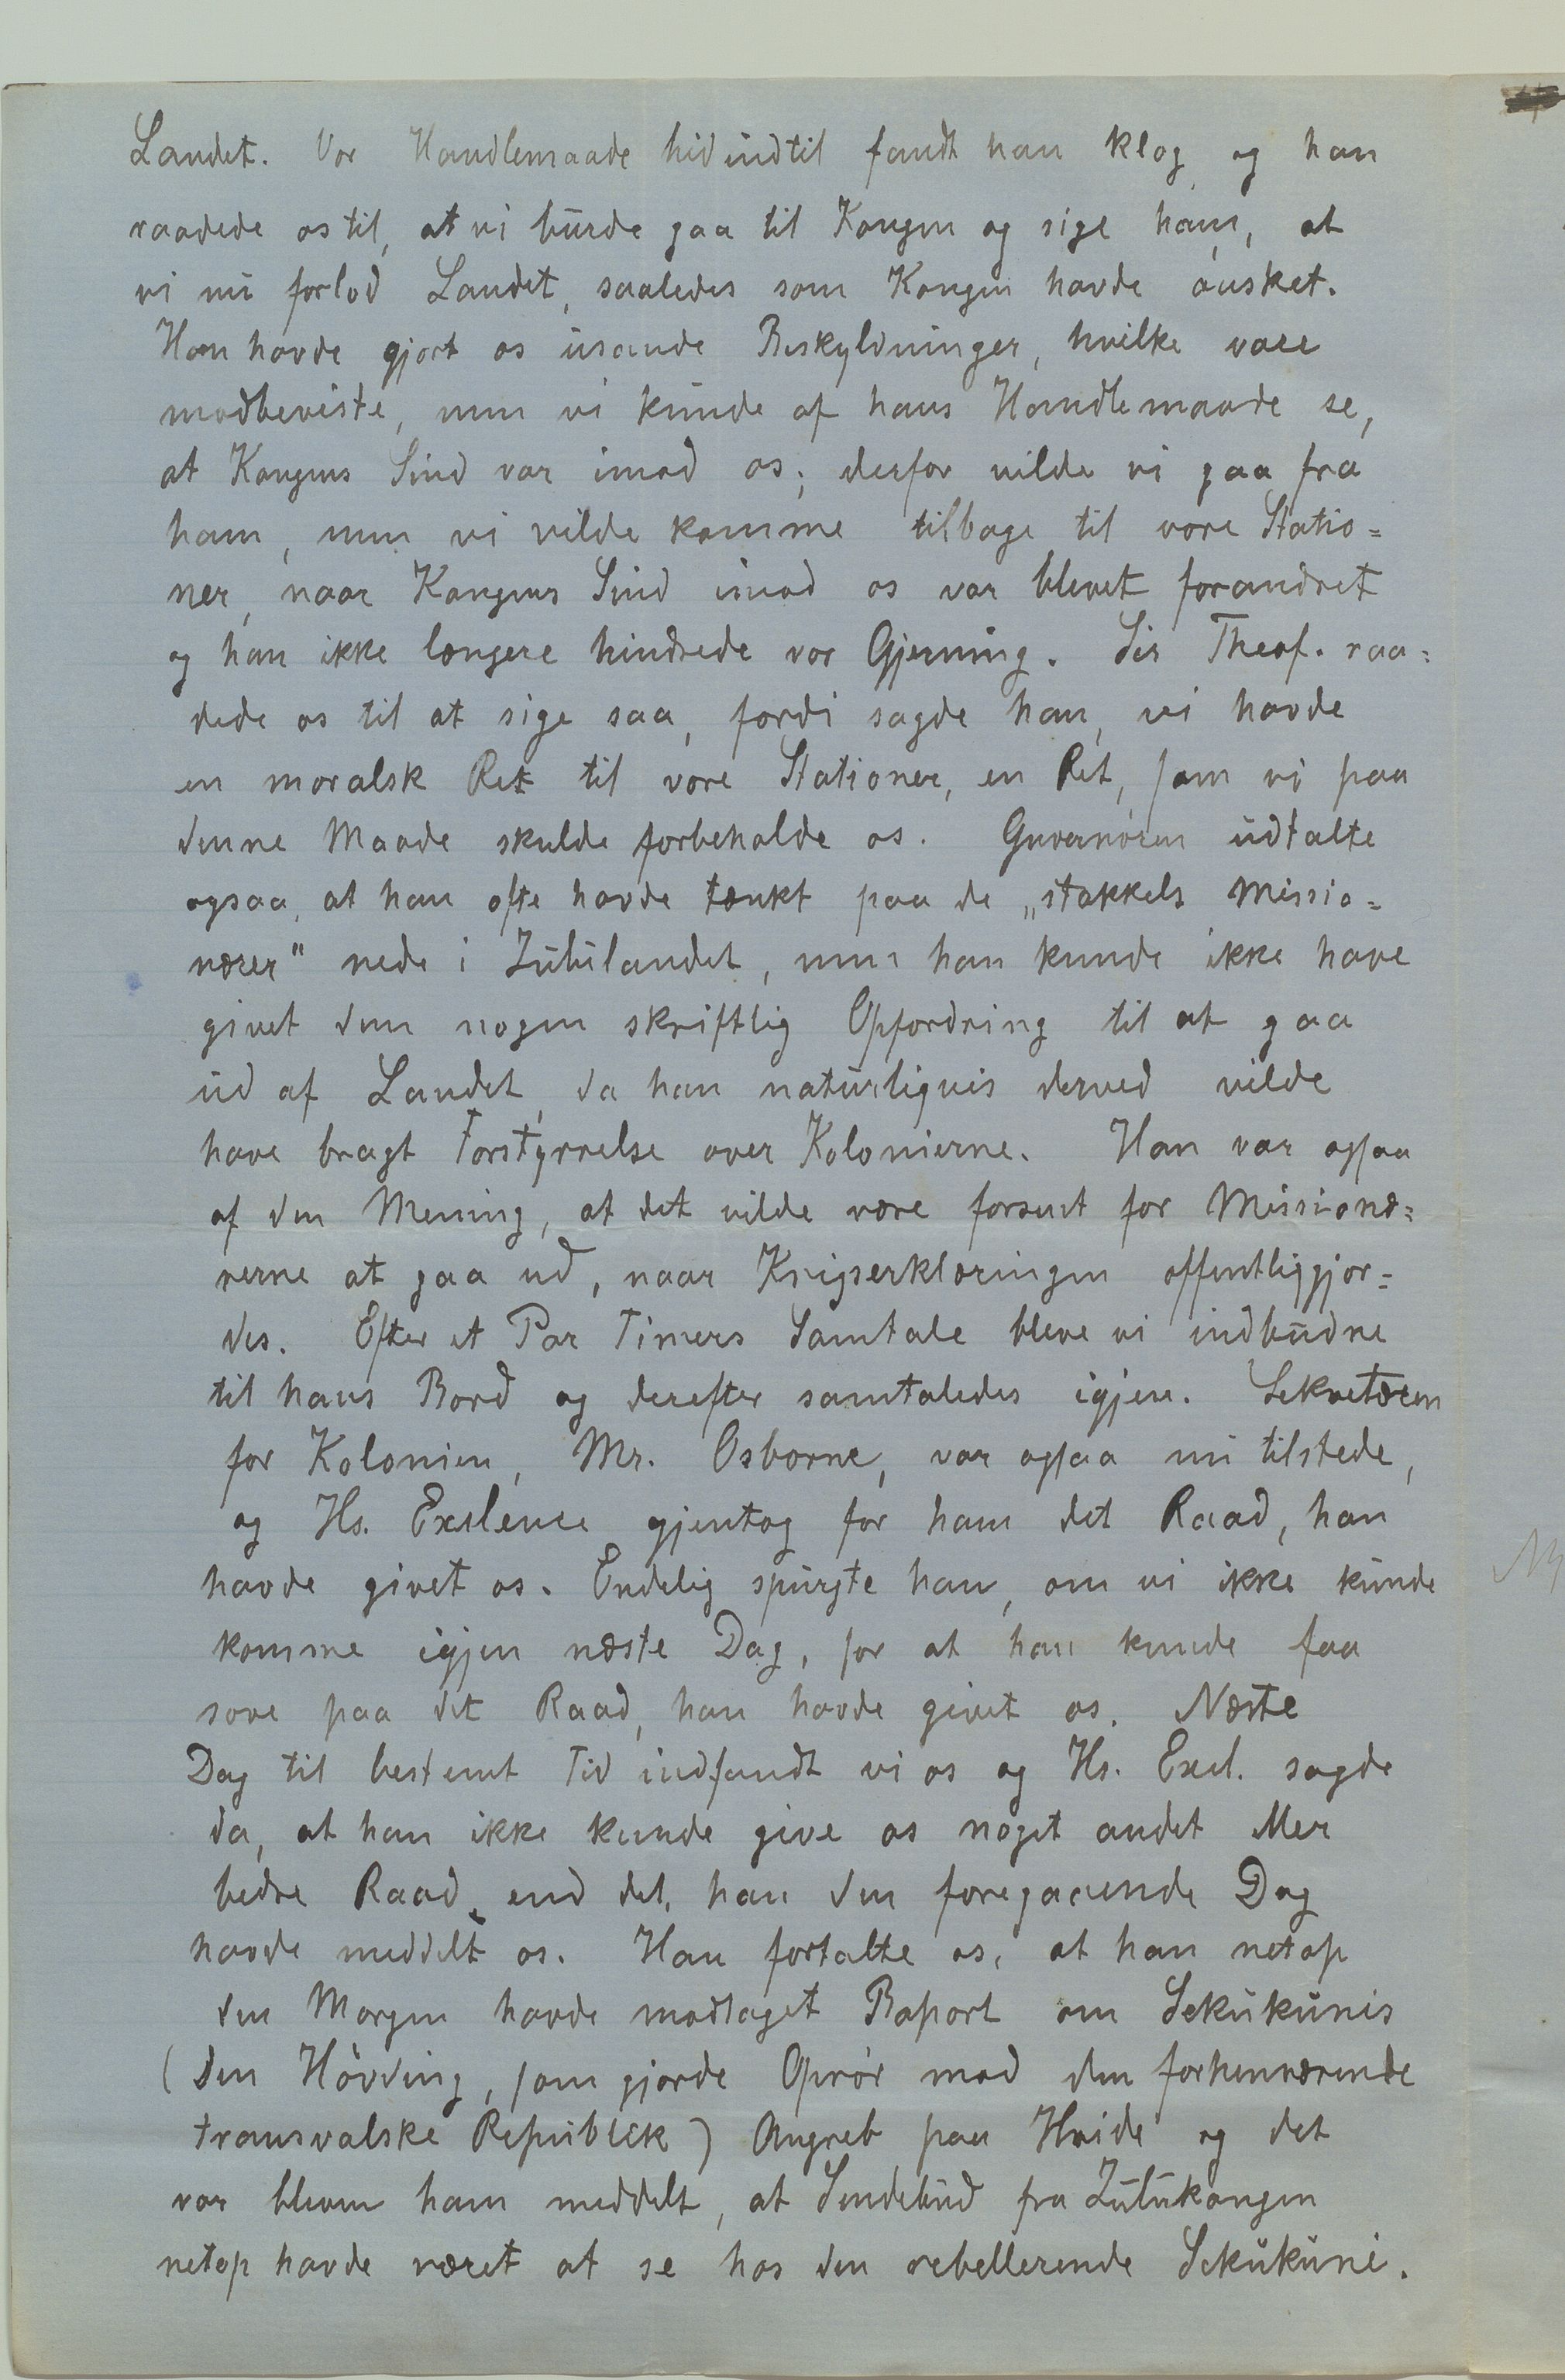 Landet. Vor Handlemaade hidindtil fandt han klog og han
raadede os til, at vi burde gaa til Kongen og sige ham, at
vi nu forlod Landet, saaledes som Kongen havde ønsket.
Han havde gjort os usande Beskyldninger, hvilke vare
modbeviste, men vi kunde af hans Handlemaade se,
at Kongens Sind var imod os; derfor vilde vi gaa fra
ham, men vi vilde komme tilbage til vore Statio=
ner, naar Kongens Sind imod os var blevet forandret
og han ikke længere hindrede vor Gjerning. Sir Theof. raa=
dede os til at sige saa, fordi sagde han, vi havde
en moralsk Ret til vore Stationer, en Ret, som vi paa
denne Maade skulde forbeholde os. Guvernøren udtalte
ogsaa, at han ofte havde tænkt paa de „stakkels Missio=
nærer" nede i Zululandet, men han kunde ikke have
givet dem nogen skriftlig Opfordring til at gaa
ud af Landet, da han naturligvis derved vilde
have bragt Forstyrrelse over Kolonierne. Han var ogsaa
af den Mening, at det vilde være forsent for Missionæ=
rerne at gaa ud, naar Krigserklæringen offentliggjor=
des. Efter et Par Timers Samtale bleve vi indbudne
til hans Bord og derefter samtaledes igjen. Sekretæren
for Kolonien, Mr. Osborne, var ogsaa nu tilstede,
og Hs. Exelence gjentog for ham det Raad, han
havde givet os. Endelig spurgte han, om vi ikke kunde
komme igjen næste Dag, for at han kunde faa
sove paa det Raad, han havde givet os. Næste
Dag til bestemt Tid indfandt vi os og Hs. Excl. sagde
da, at han ikke kunde give os noget andet eller
bedre Raad, end det, han den foregaaende Dag
havde meddelt os. Han fortalte os, at han netop
den Morgen havde modtaget Raport om Sekukunis
(den Høvding, som gjorde Oprør mod den forhenværende
transvalske Republik) Angreb paa Hvide og det
var bleven ham meddelt, at Sendebud fra Zulukongen
netop havde været at se hos den rebellerende Sekukuni.